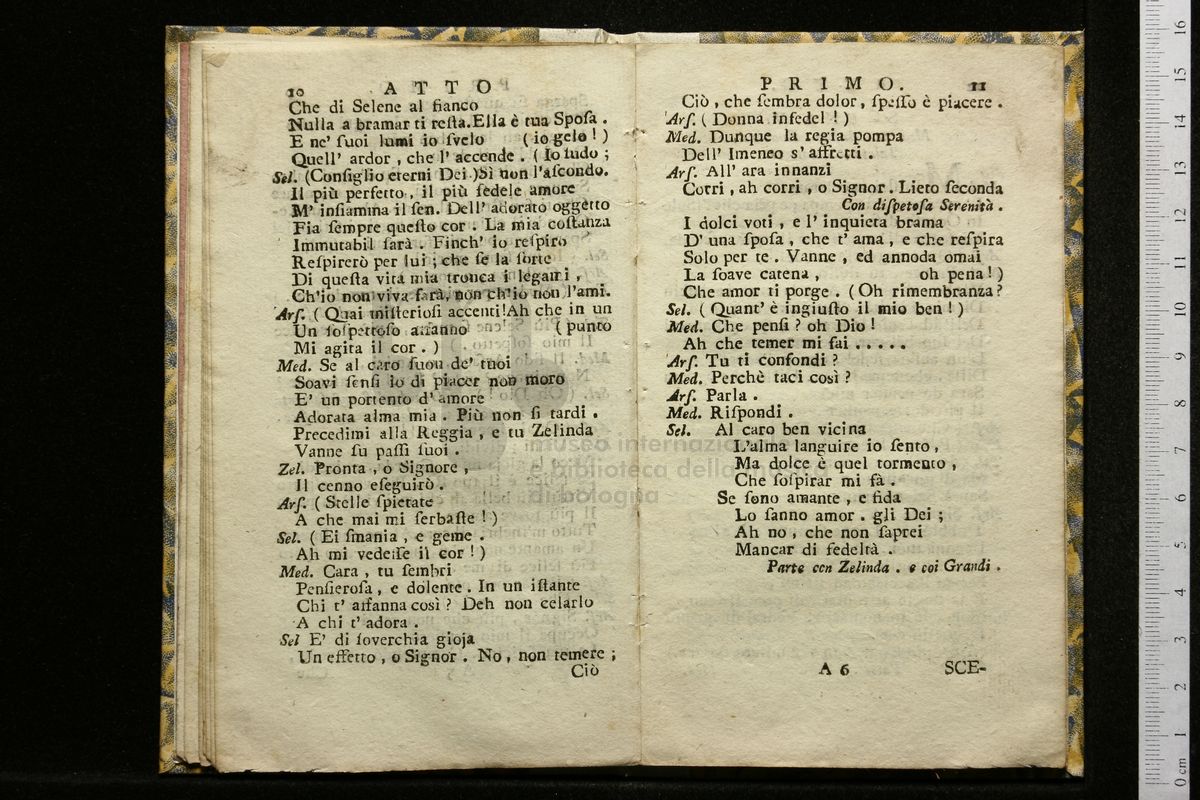 10 ATTO
Che di Selene al fianco
Nulla a bramar ti reſta. Ella è tua Spoſa .
E ne' ſuoi lumi io ſvelo ( io gelo ! )
Quell' ardor , che l' accende . ( Io ſudo ;
Sel. (Conſiglio eterni Dei.) Sì non l'aſcondo.
Il più perfetto , il più fedele amore
M' infiamina il ſen. Dell' adorato oggetto
Fia ſempre queſto cor . La mia coſtanza
Immutabil ſarà . Finch' io reſpiro
Reſpirerò per lui ; che ſe la ſorte
Di queſta vita mia tronca i legami ,
Ch'io non viva farà, non ch'io non l'ami.
Arſ. ( Quai miſterioſi accenti! Ah che in un
Un ſoſpettoſo affanno ( punto
Mi agita il cor . )
Med. Se al caro ſuon de' tuoi
Soavi ſenſi io di piacer non moro
E' un portento d' amore
Adorata alma mia . Più non ſi tardi .
Precedimi alla Reggia , e tu Zelinda
Vanne ſu paſſi ſuoi .
Zel. Pronta , o Signore ,
Il cenno eſeguirò .
Arſ. ( Stelle ſpietate
A che mai mi ſerbaſte ! )
Sel. ( Ei ſmania , e geme .
Ah mi vedeſſe il cor ! )
Med. Cara , tu ſembri
Penſieroſa , e dolente . In un iſtante
Chi t' affanna così ? Deh non celarlo
A chi t' adora .
Sel E' di ſoverchia gioja
Un effetto , o Signor . No , non temere ;
Ciò
PRIMO. 11
Ciò , che ſembra dolor , ſpeſſo è piacere .
Arſ. ( Donna infedel ! )
Med. Dunque la regia pompa
Dell' Imeneo s' affretti .
Arſ. All' ara innanzi
Corri , ah corri , o Signor . Lieto ſeconda
Con diſpetoſa Serenità .
I dolci voti , e l' inquieta brama
D' una ſpoſa , che t' ama , e che reſpira
Solo per te . Vanne , ed annoda omai
La ſoave catena , oh pena ! )
Che amor ti porge . ( Oh rimembranza ?
Sel. ( Quant' è ingiuſto il mio ben ! )
Med. Che penſi ? oh Dio !
Ah che temer mi fai . . . . .
Arſ. Tu ti confondi ?
Med. Perchè taci così ?
Arſ. Parla .
Med. Riſpondi .
Sel. Al caro ben vicina
L'alma languire io ſento ,
Ma dolce è quel tormento ,
Che ſoſpirar mi fà .
Se ſono amante , e fida
Lo ſanno amor . gli Dei ;
Ah no , che non ſaprei
Mancar di fedeltà .
Parte con Zelinda . e coi Grandi .
A 6 SCE-
museo internazionale
e biblioteca della musica
di bologna
0 cm 1 2 3 4 5 6 7 8 9 10 11 12 13 14 15 16